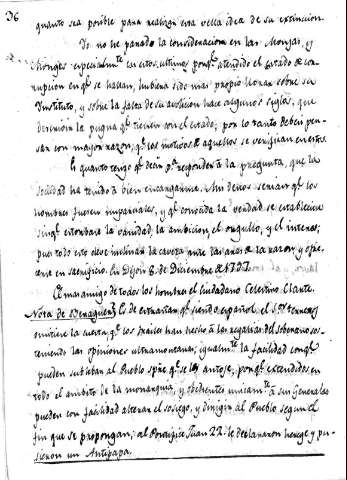 36
quanto sea posible para realizar esta bella idea de su extincion.
Yo no he parado la consideracion en las Monjas, y
Monges especialmte en estos ultimos porq.e atendido el estado de co-
rrupcion en q.e se hallan, hubiera sido mas propio llorar sobre su
Instituto, y sobre la falta de su abolicion hace algunos siglos, que
describir la pugna q.e tienen con el estado; por lo tanto deben pen-
sar con mayor razon, q.e los motivos de aquellos se verifican en estos.
Es quanto tengo q.e decir p.a responder á la pregunta, que la
sociedad ha tenido á bien encargarme. Mis deseos serian q.e los
hombres fuesen imparciales, y q.e conocida la verdad se estableciera
sin q.e estorbara la vanidad, la ambicion, el orgullo, y el interes;
pues todo esto debe inclinar la cabeza ante las aras de la razon y ofre-
cerse en sacrificio. En Dijon 8 de Diciembre de 1797.
El mas amigo de todos los hombres el ciudadano Celestino Elante.
Nota de Benaguer Es de extrañar q.e siendo español, el S.or
omitiese la guerra, q.e los frailes han hecho á las regalías del soberano sos-
teniendo las opiniones ultramontanas; igualm.te la facilidad con q.e
pueden sublevar al Pueblo spre q.e se les antoje, porq.e extendidos en
todo el ambito de la monarquia, y obedientes unicam.te a sus Generales
pueden con facilidad alterar el sosiego, y dirigir al Pueblo segun el
fin que se propongan; al Pontifice Juan 22. le declararon herege y pu-
sieron un Antipapa.